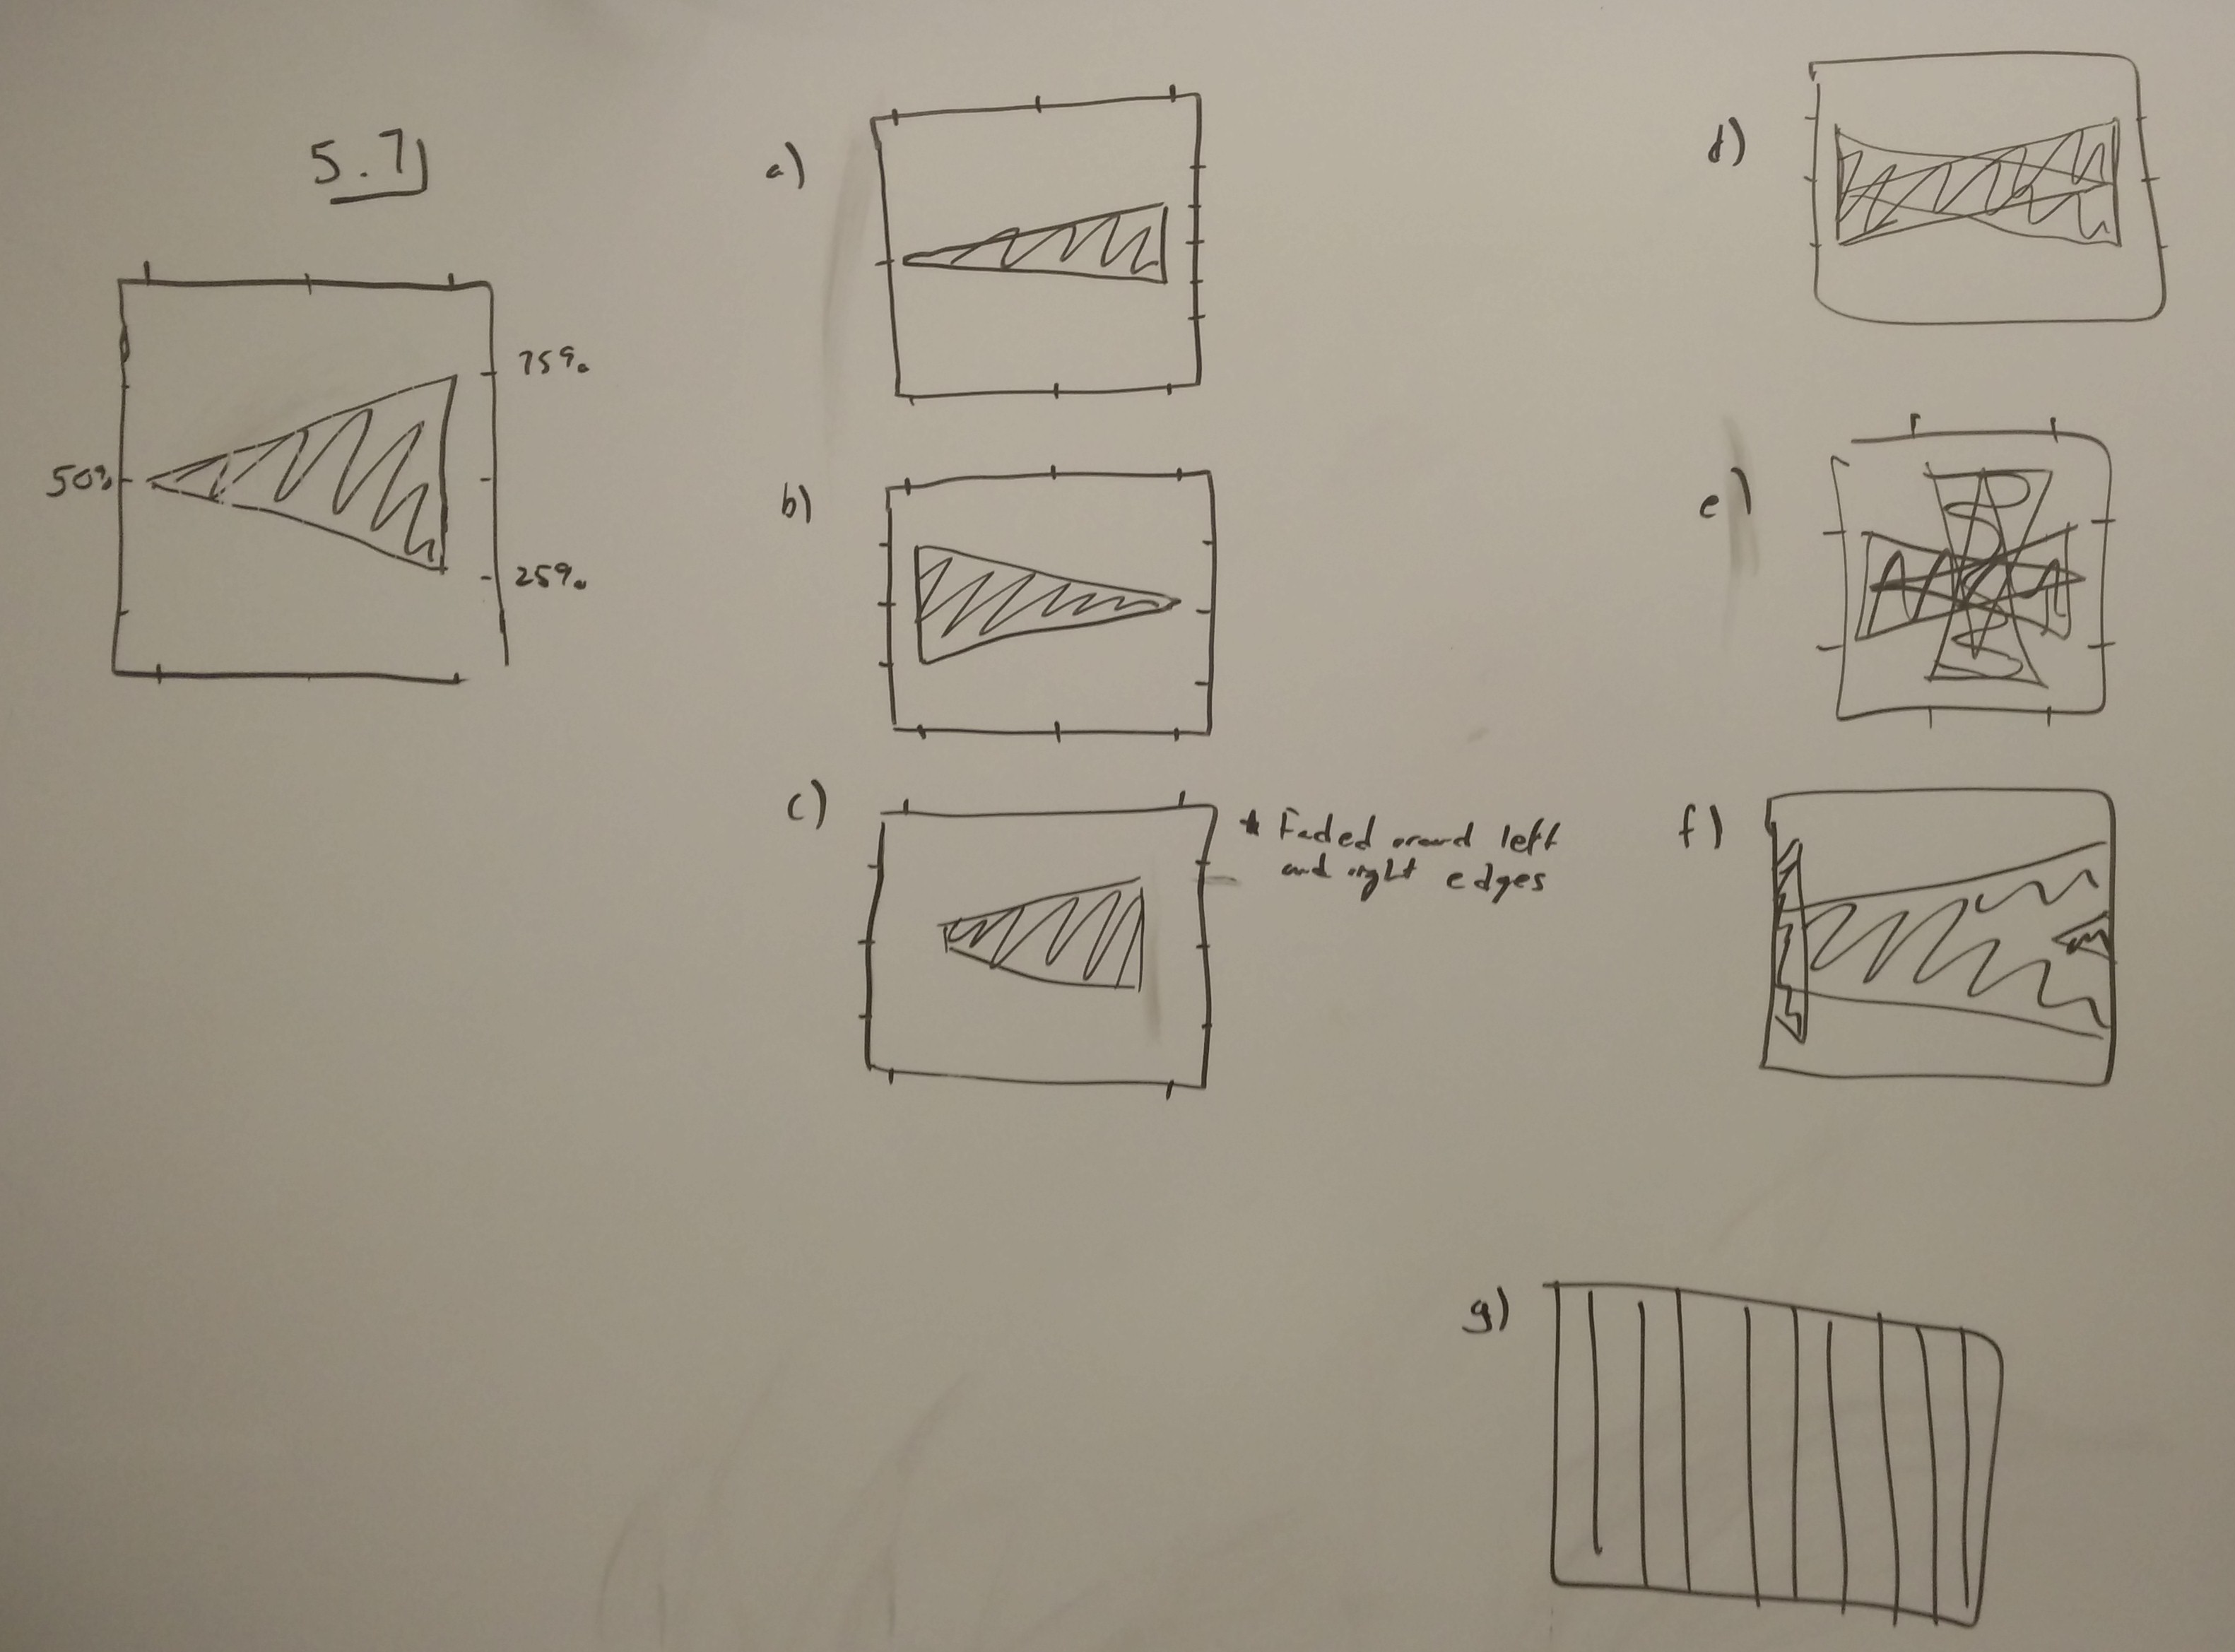 5.7)
50%
75%
25%
a)
b)
c)
* Faded around left
and right edges
d)
e)
f)
g)